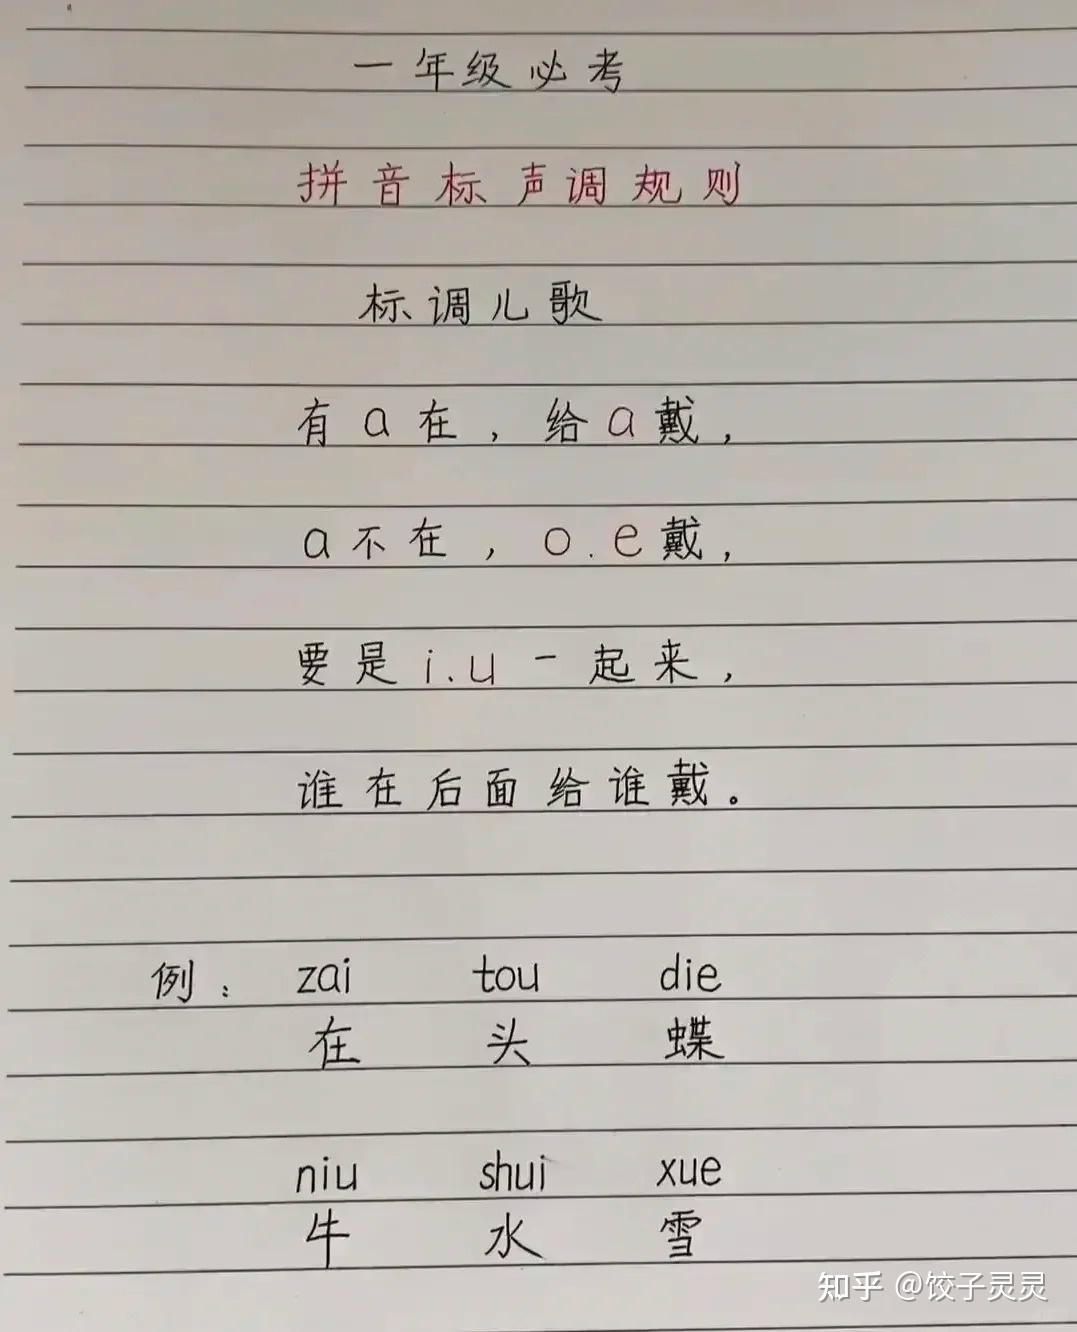 一年级必考
拼音标声调规则
标调儿歌
有a在，给a戴，
a不在，o.e戴，
要是i.u一起来，
谁在后面给谁戴。
例： zai tou die
在 头 蝶
niu shui xue
牛 水 雪
知乎 @饺子灵灵